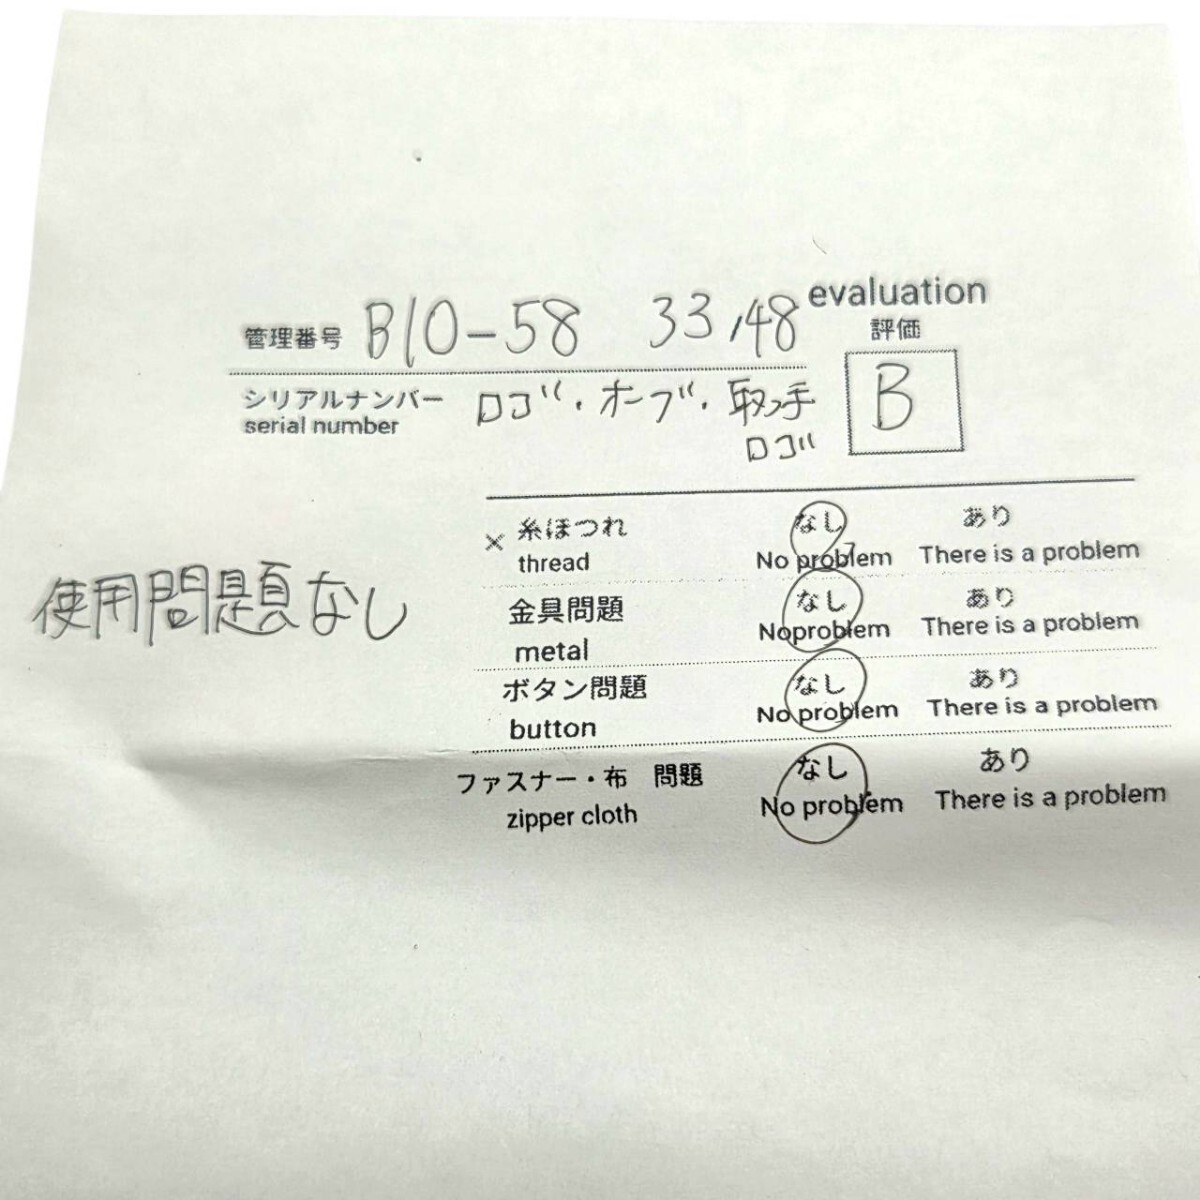 管理番号 B10-58 33,48
evaluation
評価
B
シリアルナンバー ロゴ・オーブ・取っ手
serial number
ロゴ
× 糸ほつれ なし あり
thread No problem There is a problem
使用問題なし
金具問題 なし あり
metal Noproblem There is a problem
ボタン問題 なし あり
button No problem There is a problem
ファスナー・布 問題 なし あり
zipper cloth No problem There is a problem